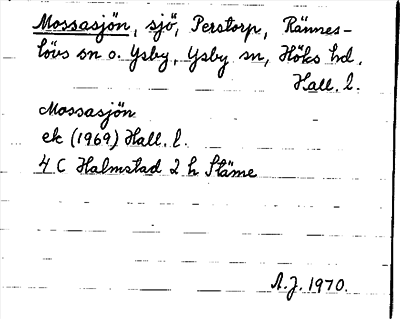 Mossasjön, sjö, Perstorp, Rännes-
lövs sn o. Ysby, Ysby sn, Höks hd,
Hall. l.
Mossasjön
ek (1969) Hall. l.
4 C Halmstad 2 h Släme
A.J. 1970.